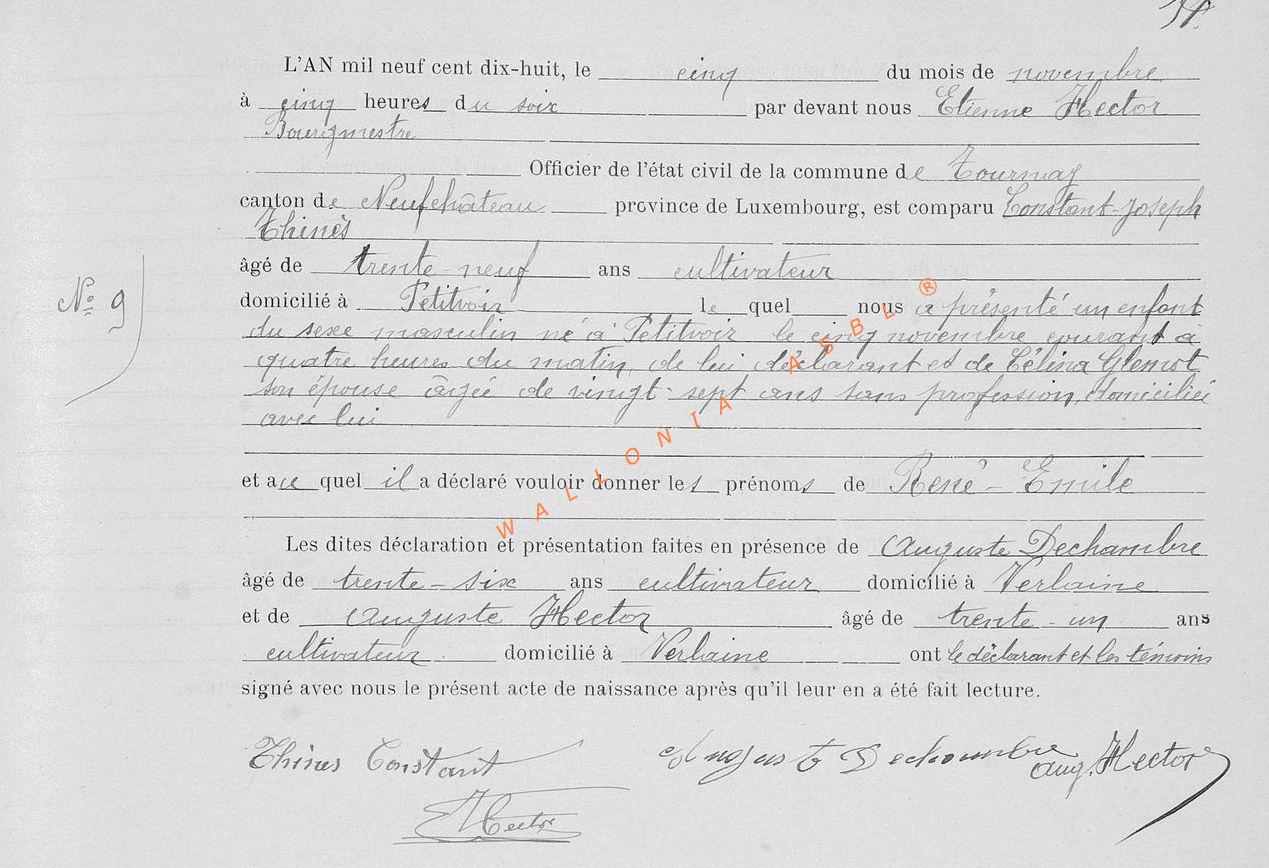 L'AN mil neuf cent dix-huit, le cinq du mois de novembre
à cinq heures du soir par devant nous Etienne Hector
Bourgmestre
Officier de l'état civil de la commune de Tournay
canton de Neufchâteau province de Luxembourg, est comparu Constant-Joseph
Thinès
âgé de trente-neuf ans cultivateur
domicilié à Petitvoir le quel nous a présenté un enfant
du sexe masculin né à Petitvoir le cinq novembre courant à
quatre heures du matin, de lui déclarant et de Célina Glemot
son épouse âgée de vingt-sept ans sans profession, domiciliée
avec lui
et au quel il a déclaré vouloir donner les prénoms de René-Emile
Les dites déclaration et présentation faites en présence de Auguste Dechambre
âgé de trente-six ans cultivateur domicilié à Verlaine
et de Auguste Hector âgé de trente-un ans
cultivateur domicilié à Verlaine ont le déclarant et les témoins
signé avec nous le présent acte de naissance après qu'il leur en a été fait lecture.
No 9
WALLONIA ASBL ®
Thines Constant
August Dechambre
Aug. Hector
E Hector